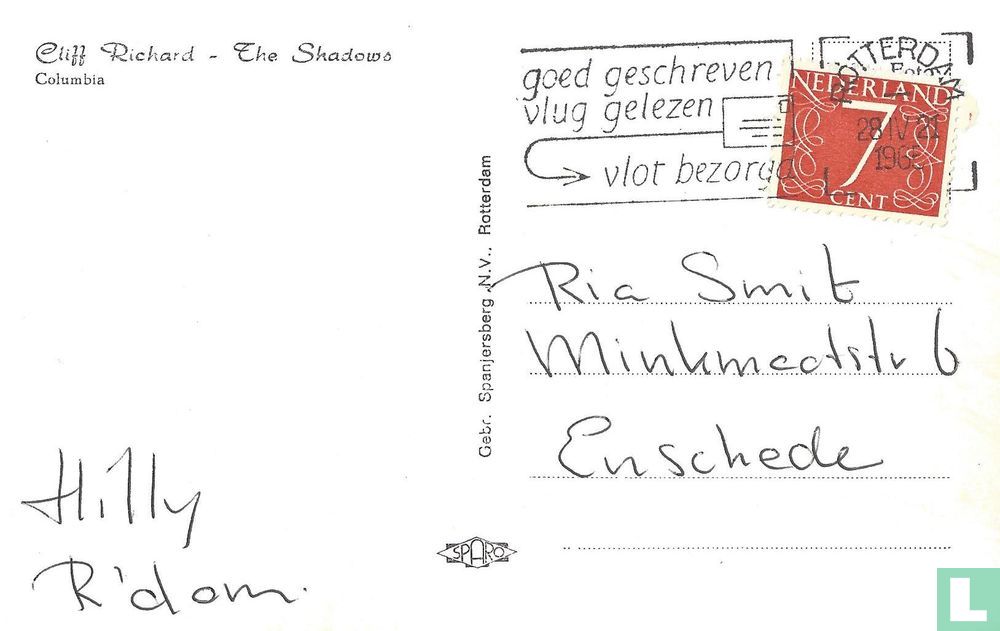 Cliff Richard - The Shadows
Columbia
goed geschreven
vlug gelezen
vlot bezorgd
ROTTERDAM
28 IV 21
1965
NEDERLAND
7
CENT
Gebr. Spanjersberg N.V., Rotterdam
Ria Smit
Minkmaatstr 6
Enschede
Hilly
R'dam.
SPARO
L